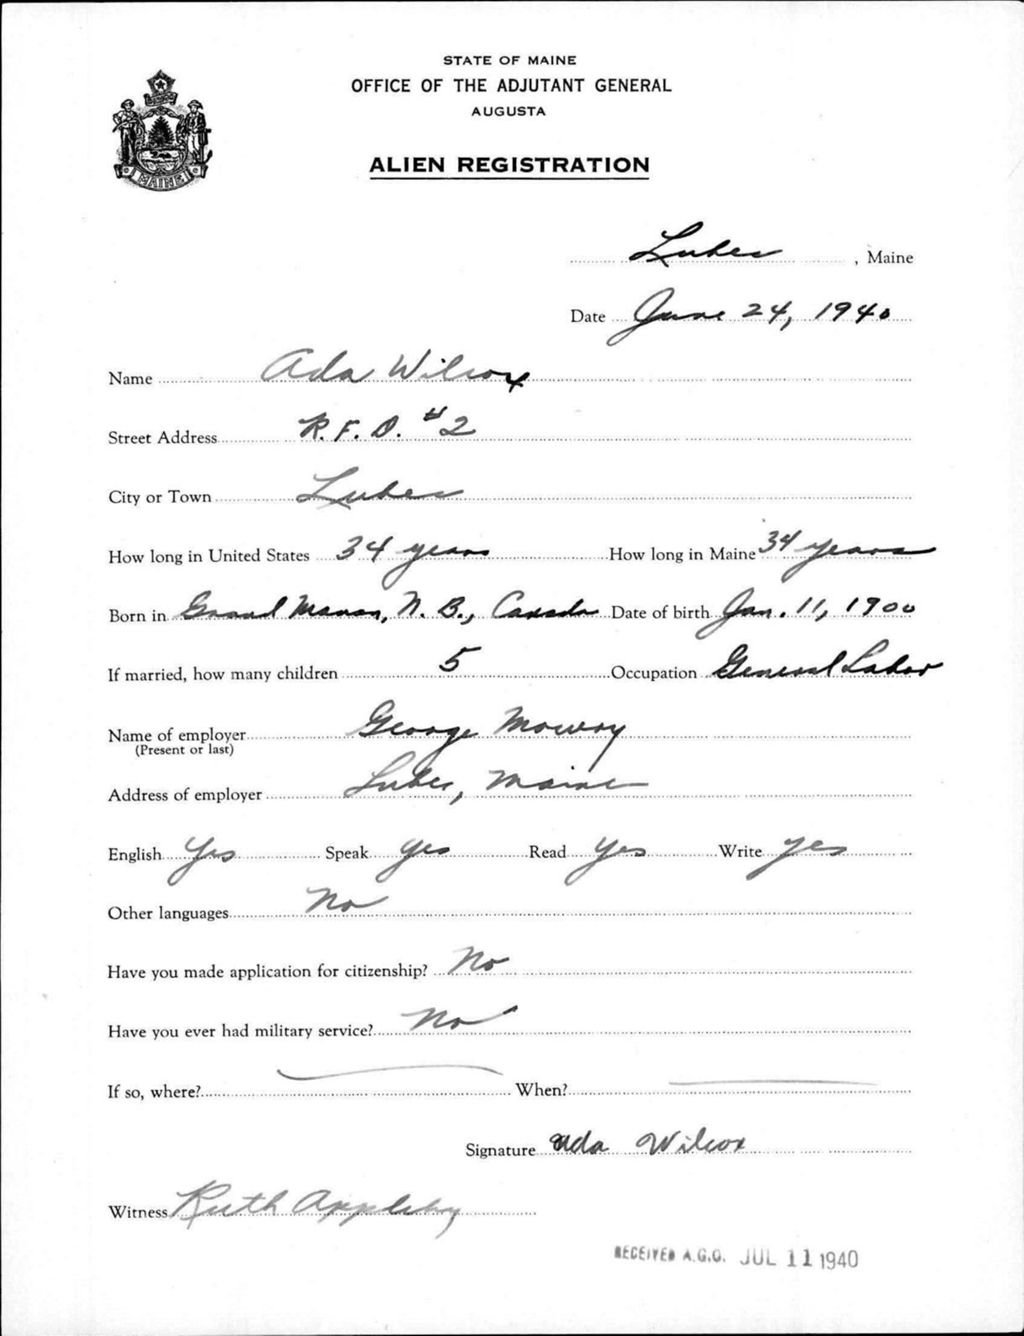 STATE OF MAINE
OFFICE OF THE ADJUTANT GENERAL
AUGUSTA
ALIEN REGISTRATION
MAINE
Lubec, Maine
Date June 24, 1940
Name Ada Wilcox
Street Address R.F.D. #2
City or Town Lubec
How long in United States 34 years How long in Maine 34 years
Born in Grand Manan, N. B., Canada Date of birth Jan. 11, 1900
If married, how many children 5 Occupation General Labor
Name of employer George Mowry
(Present or last)
Address of employer Lubec, Maine
English Yes Speak yes Read Yes Write yes
Other languages No
Have you made application for citizenship? No
Have you ever had military service? No
If so, where? When?
Signature Ada Wilcox
Witness Ruth Appleby
RECEIVED A.G.O. JUL 11 1940